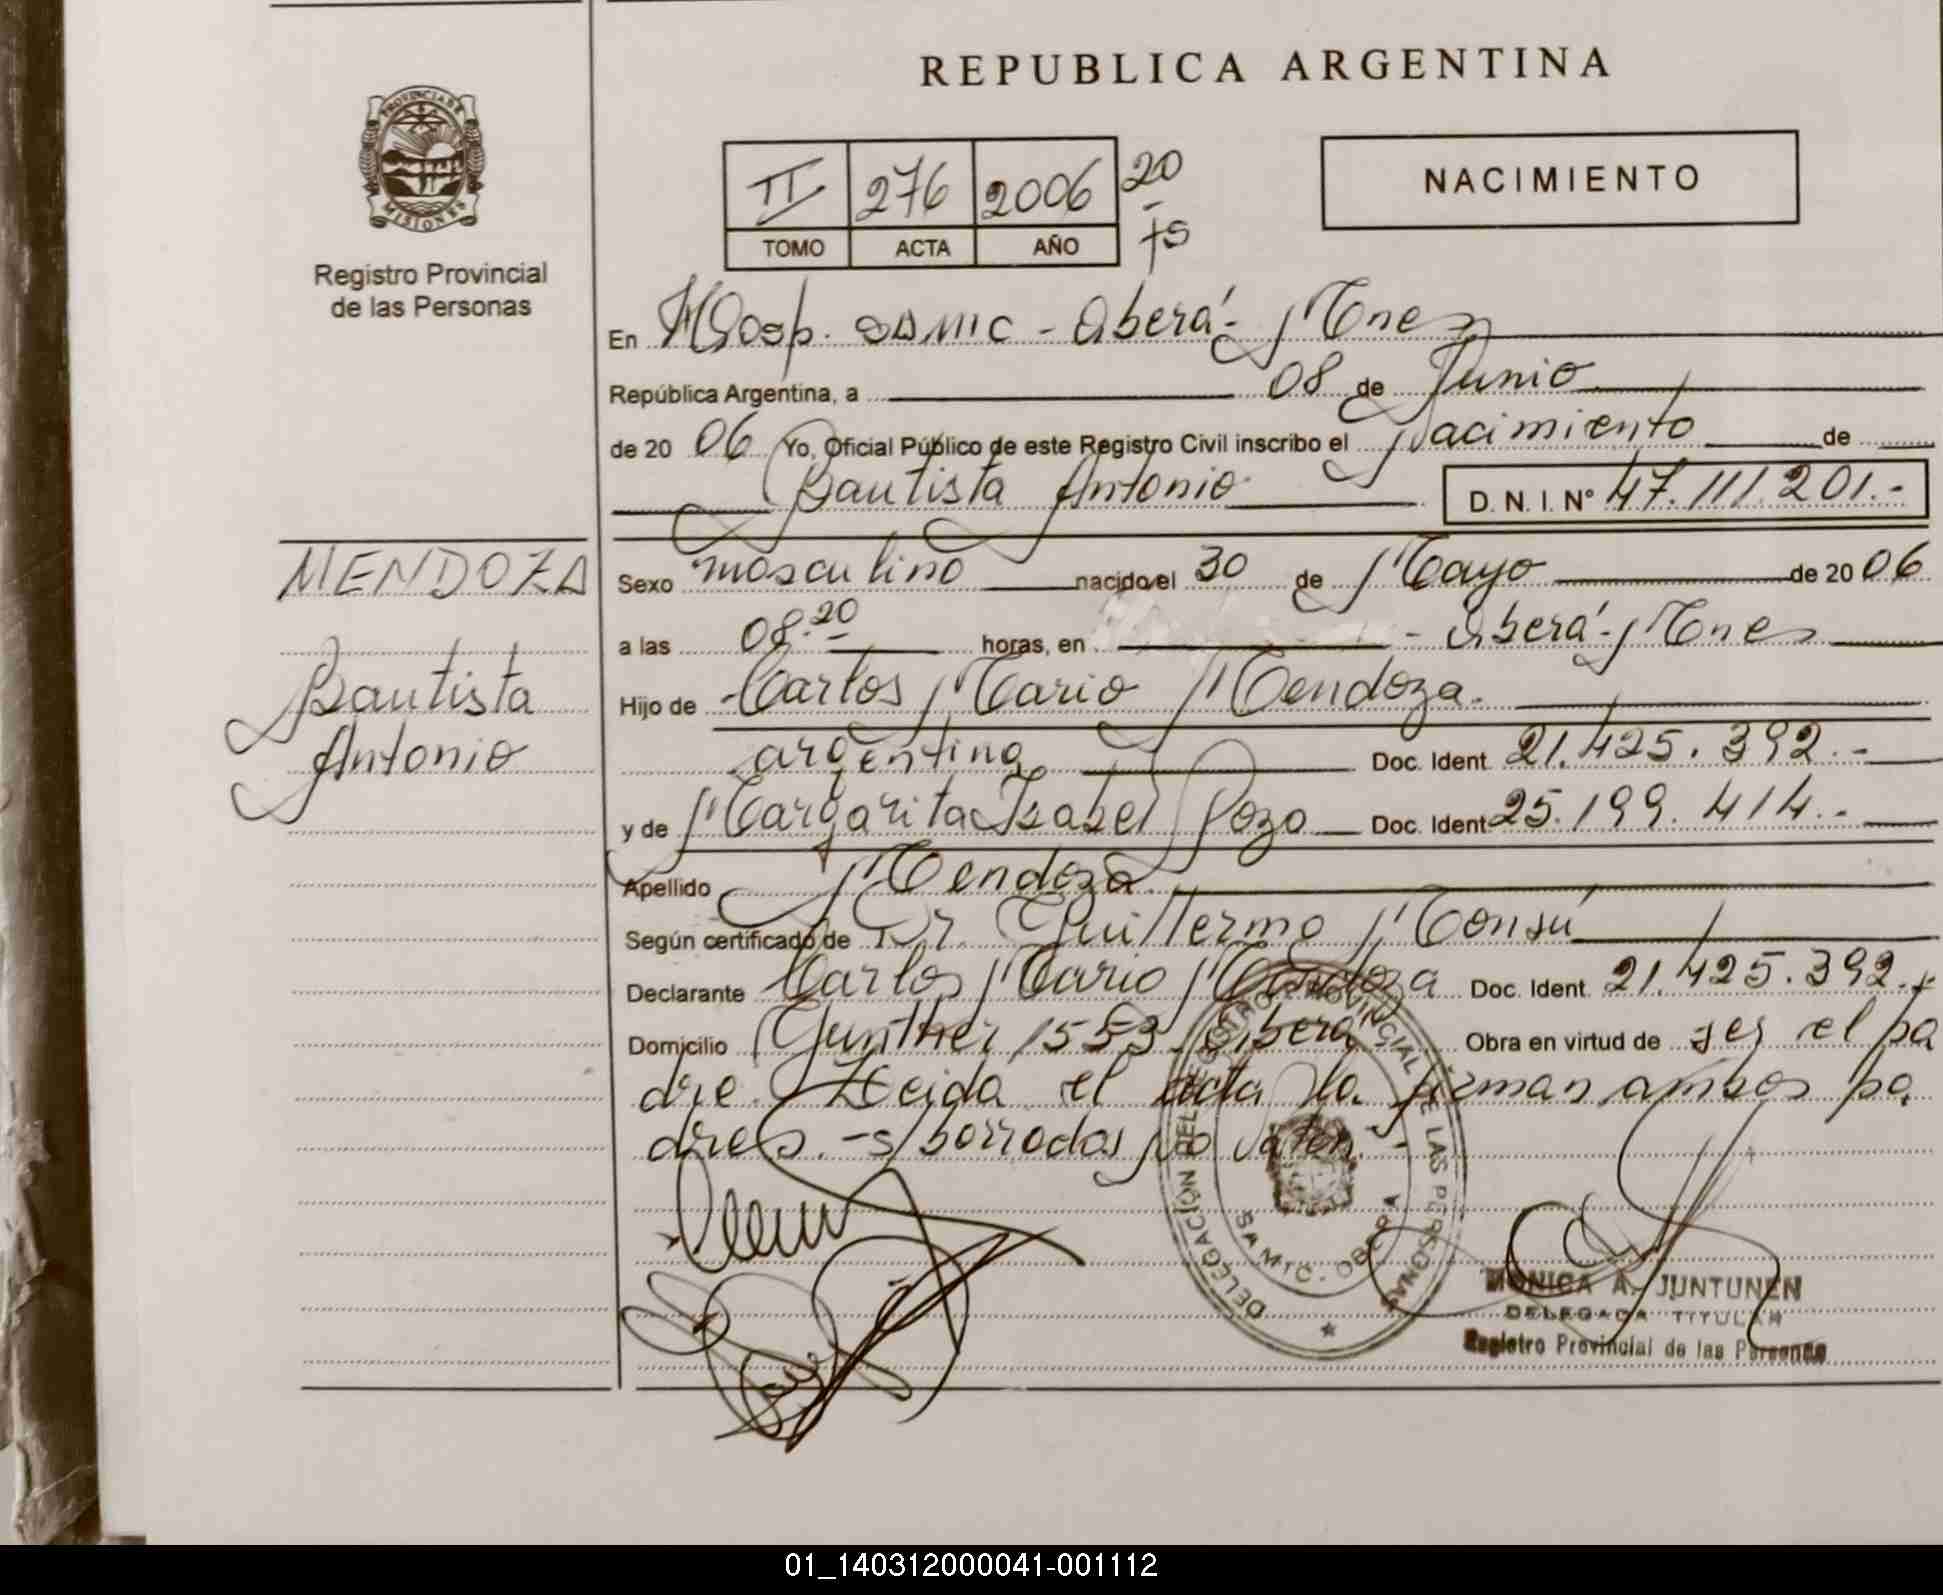 REPUBLICA ARGENTINA
PROVINCIA DE
MISIONES
Registro Provincial
de las Personas
II 276 2006 20
TOMO ACTA AÑO
NACIMIENTO
En Hosp. SAMIC - Oberá - Mnes
República Argentina, a 08 de Junio
de 20 06 Yo, Oficial Público de este Registro Civil inscribo el Nacimiento de
Bautista Antonio D. N. I. Nº 47.111.201.-
MENDOZA
Bautista
Antonio
Sexo masculino nacido el 30 de Mayo de 20 06
a las 08.20 horas, en - Oberá - Mnes
Hijo de Carlos Mario Mendoza.
argentina Doc. Ident. 21.425.392.-
y de Margarita Isabel Pozo Doc. Ident. 25.199.414.-
Apellido Mendoza
Según certificado de Dr. Guillermo Monsú
Declarante Carlos Mario Mendoza Doc. Ident. 21.425.392.-
Domicilio Gunther 1553 Oberá Obra en virtud de ser el pa
dre. Leida el acta la firman ambos pa
dres. - s/borrados no valen. -
DELEGACIÓN DEL REGISTRO PROVINCIAL DE LAS PERSONAS
SAMIC - OBERA
MONICA A. JUNTUNEN
DELEGADA TITULAR
Registro Provincial de las Personas
01_140312000041-001112